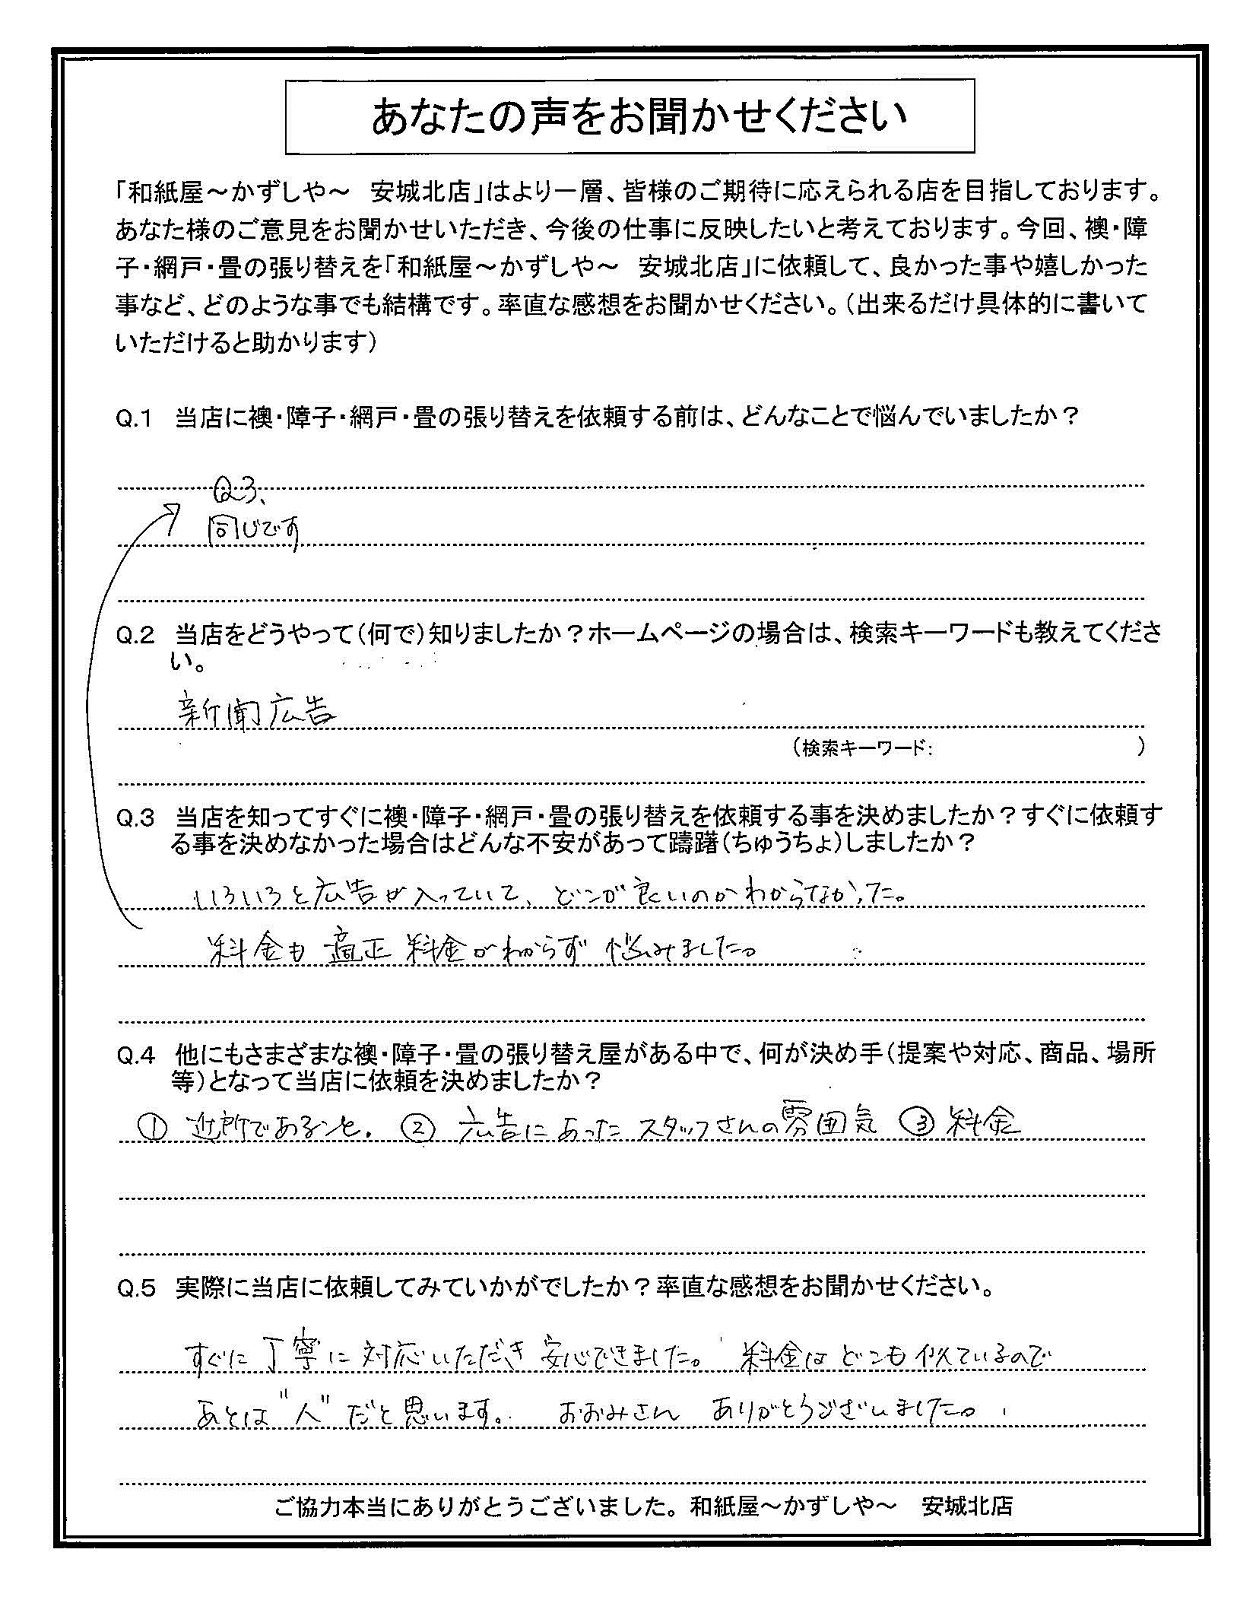 あなたの声をお聞かせください
「和紙屋～かずしや～　安城北店」はより一層、皆様のご期待に応えられる店を目指しております。
あなた様のご意見をお聞かせいただき、今後の仕事に反映したいと考えております。今回、襖・障
子・網戸・畳の張り替えを「和紙屋～かずしや～　安城北店」に依頼して、良かった事や嬉しかった
事など、どのような事でも結構です。率直な感想をお聞かせください。（出来るだけ具体的に書いて
いただけると助かります）
Q.1　当店に襖・障子・網戸・畳の張り替えを依頼する前は、どんなことで悩んでいましたか？
Q3、
同じです
Q.2　当店をどうやって（何で）知りましたか？ホームページの場合は、検索キーワードも教えてくださ
い。
新聞広告
（検索キーワード：　　　　　　　　　　）
Q.3　当店を知ってすぐに襖・障子・網戸・畳の張り替えを依頼する事を決めましたか？すぐに依頼す
る事を決めなかった場合はどんな不安があって躊躇（ちゅうちょ）しましたか？
いろいろと広告が入っていて、どこが良いのかわからなかった。
料金も適正料金がわからず悩みました。
Q.4　他にもさまざまな襖・障子・畳の張り替え屋がある中で、何が決め手（提案や対応、商品、場所
等）となって当店に依頼を決めましたか？
① 近所であること。 ② 広告にあったスタッフさんの雰囲気 ③ 料金
Q.5　実際に当店に依頼してみていかがでしたか？率直な感想をお聞かせください。
すぐに丁寧に対応いただき安心できました。料金はどこも似ているので
あとは"人"だと思います。　おおみさん　ありがとうございました。
ご協力本当にありがとうございました。和紙屋～かずしや～　安城北店